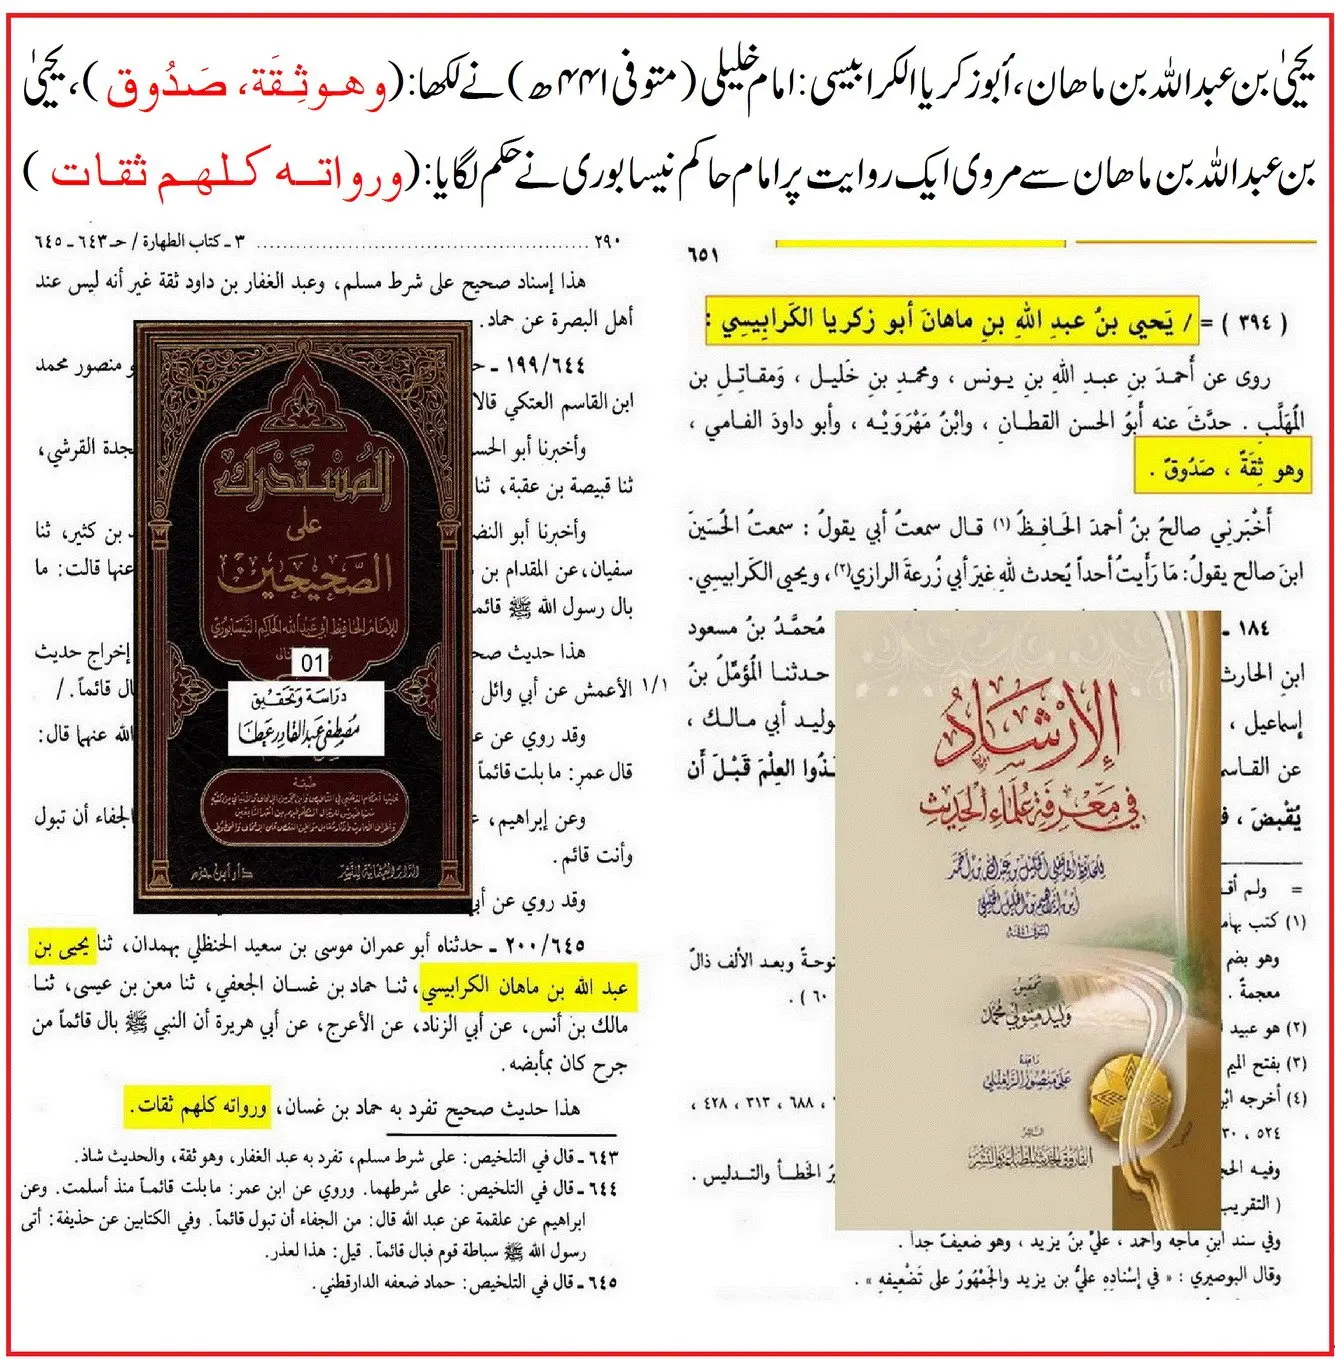 یحییٰ بن عبد اللہ بن ماھان، أبو زکریا الکرابیسی: امام خلیلی (متوفی ۴۴۶ھ) نے لکھا: (وهو ثِقَة، صَدُوق)، یحییٰ
بن عبد اللہ بن ماھان سے مروی ایک روایت پر امام حاکم نیسابوری نے حکم لگایا: (ورواته كلهم ثقات)
٦٥١
( ٣٩٤ ) = / يَحيى بنُ عبدِ اللهِ بنِ ماهانَ أبو زكريا الكَرابِيسِي :
روى عن أَحمدَ بنِ عبدِ اللهِ بنِ يونس ، ومحمدِ بنِ خَليل ، وَمقاتلِ بن
المُهَلَّبِ . حدَّثَ عنه أبُو الحسن القطان ، وابْنُ مَهْرَوَيْه ، وأبو داودَ الفامي ،
وهو ثِقَةٌ ، صَدُوقٌ .
أَخْبَرنِي صالحُ بنُ أحمدَ الحَافِظُ (١) قال سمعتُ أبي يقولُ : سمعتُ الحُسَينَ
ابنَ صالح يقولُ: مَا رَأيتُ أحداً يُحدث للهِ غيرَ أبي زُرعةَ الرازي(٢)، ويحيى الكَرابيسي.
١٨٤ ـ
مُحمَّدُ بنُ مسعود
ابنِ الحارث
حدثنا المُؤمَّلُ بنُ
إسماعيل ،
وليد أبي مالك ،
عن القاسم
خُذُوا العِلْمَ قَبْلَ أَن
يُقْبَضَ ،
= ولم أقف
(١) كتب بهامش
وهو بضم
توحةً وبعد الألف ذالٌ
معجمةٌ .
٦٠ ) .
(٢) هو عبيد
(٣) بفتح الميم
(٤) أخرجه ابن
، ٦٨٨ ، ٣١٣ ، ٤٢٨ ،
٥٢٤ ،
وفيه الحج
الخَطأ والتدليس .
( التقريب
وفي سند ابنِ ماجه وأحمد ، عليُّ بنُ يزيد ، وهو ضعيفٌ جداً .
وقال البوصيري : « في إسْنادِهِ عليُّ بن يزيد والجَمْهُورُ على تَضْعِيفِهِ » .
الإرشاد
في معرفة علماء الحديث
للحافظ أبي يعلى الخليل بن عبد الله بن أحمد
ابن إبراهيم بن الخليل الخليلي
تحقيق
وليد متولي محمد
الناشر
الفاروق الحديثة للطباعة والنشر
٢٩٠ ........ ٣ ـ كتاب الطهارة / حـ ٦٤٣ ـ ٦٤٥
هذا إسناد صحيح على شرط مسلم، وعبد الغفار بن داود ثقة غير أنه ليس عند
أهل البصرة عن حماد.
٦٤٤/ ١٩٩ ـ
و منصور محمد
ابن القاسم العتكي قالا
وأخبرنا أبو الحس
جدة القرشي،
ثنا قبيصة بن عقبة، ثنا
وأخبرنا أبو النض
بن كثير، ثنا
سفيان، عن المقدام بن
عنها قالت: ما
بال رسول الله ﷺ قائم
هذا حديث صح
إخراج حديث
١/١ الأعمش عن أبي وائل
ال قائماً. /
وقد روي عن ع
الله عنهما قال:
قال عمر: ما بلت قائماً
وعن إبراهيم،
الجفاء أن تبول
وأنت قائم.
وقد روي عن أبي
٦٤٥/ ٢٠٠ ـ حدثناه أبو عمران موسى بن سعيد الحنظلي بهمدان، ثنا يحيى بن
عبد الله بن ماهان الكرابيسي، ثنا حماد بن غسان الجعفي، ثنا معن بن عيسى، ثنا
مالك بن أنس، عن أبي الزناد، عن الأعرج، عن أبي هريرة أن النبي ﷺ بال قائماً من
جرح كان بمأبضه.
هذا حديث صحيح تفرد به حماد بن غسان، ورواته كلهم ثقات.
٦٤٣ ـ قال في التلخيص: على شرط مسلم، تفرد به عبد الغفار، وهو ثقة، والحديث شاذ.
٦٤٤ ـ قال في التلخيص: على شرطهما. وروي عن ابن عمر: ما بلت قائماً منذ أسلمت. وعن
ابراهيم عن علقمة عن عبد الله قال: من الجفاء أن تبول قائماً. وفي الكتابين عن حذيفة: أتى
رسول الله ﷺ سباطة قوم فبال قائماً. قيل: هذا لعذر.
٦٤٥ ـ قال في التلخيص: حماد ضعفه الدارقطني.
المستدرك
على
الصحيحين
للإمام الحافظ أبي عبد الله الحاكم النيسابوري
01
دراسة وتحقيق
مصطفى عبد القادر عطا
الدار العثمانية للنشر
دار ابن حزم